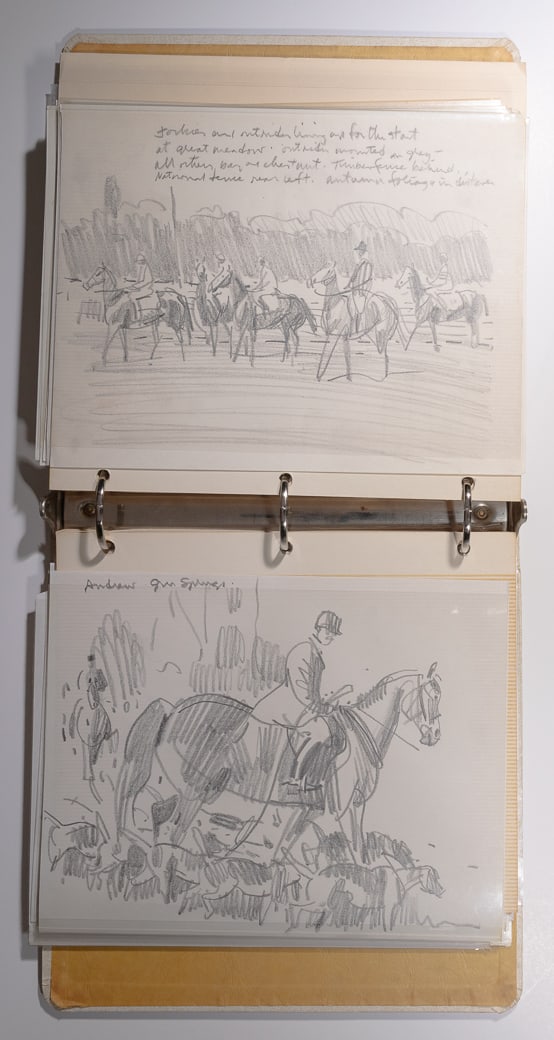 Jockies and outrider lining up for the start
at great meadow. outrider mounted on gray -
all others bay or chestnut. Timber fence behind.
National fence rear left. autumn foliage in distance
Andrew Gun Springs.